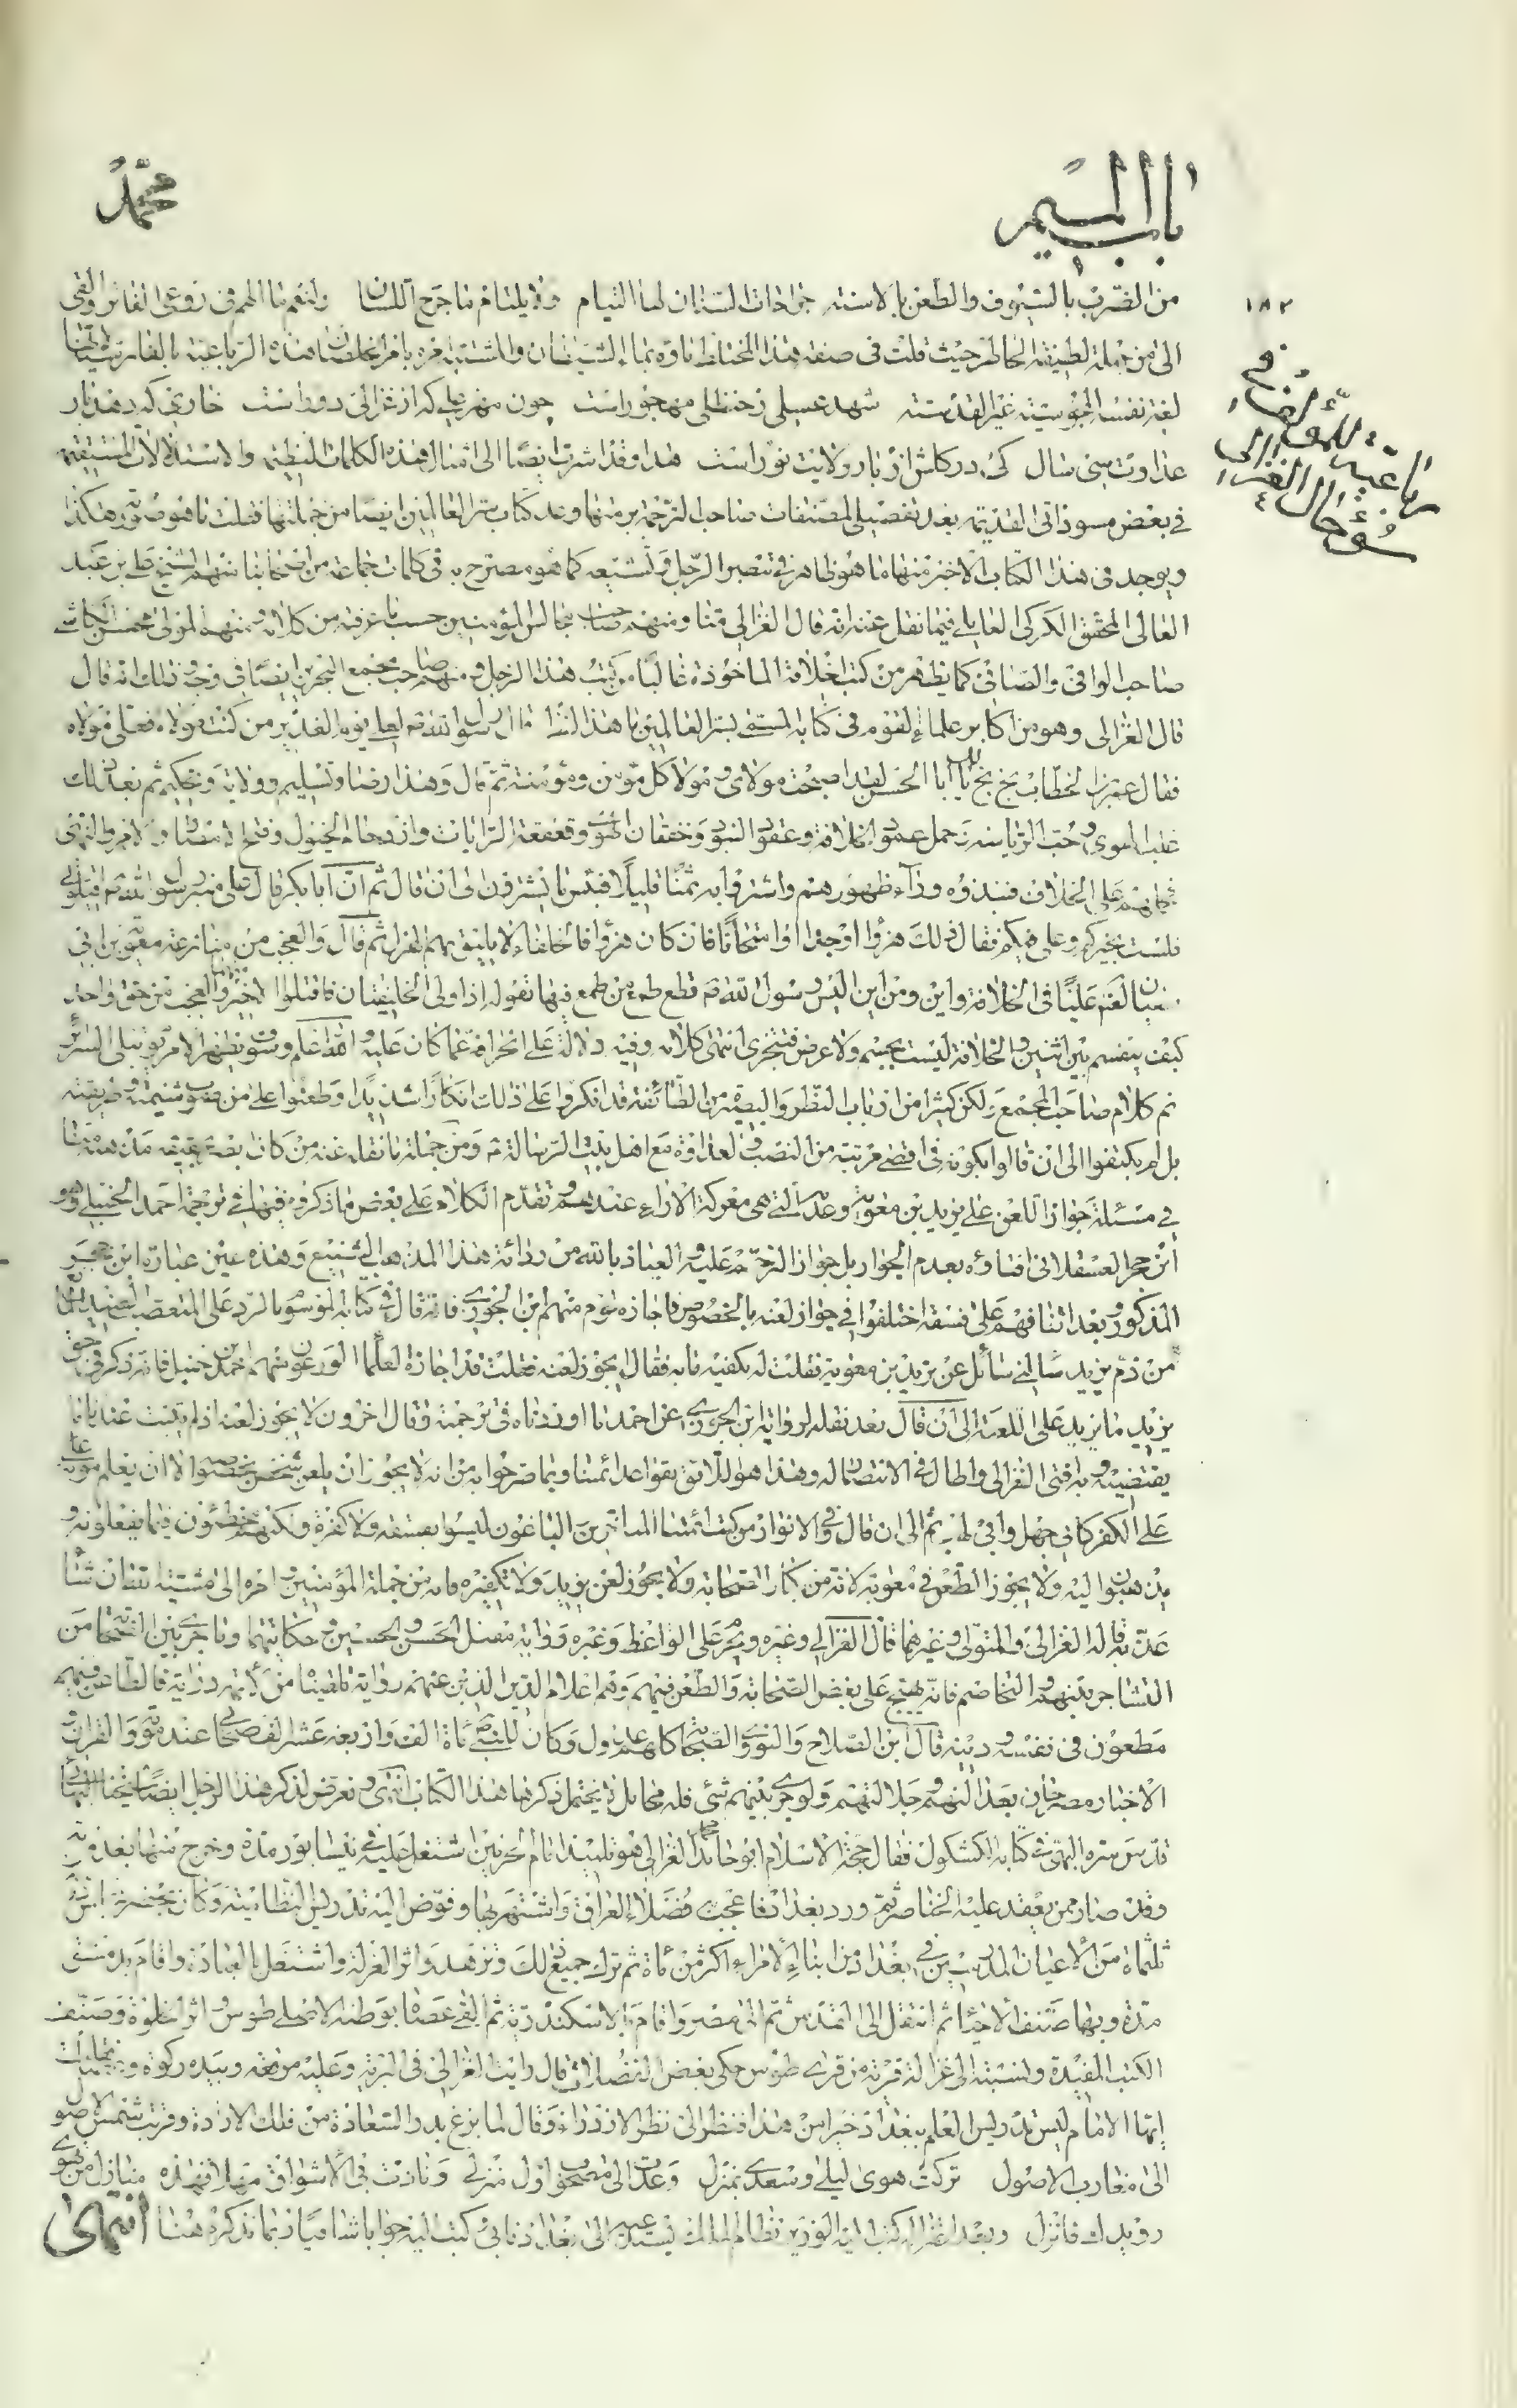 باب الميم
محمد
١٨٢
رباعية للمؤلف في
سوء حال الغزالي
من الضرب بالسيوف والطعن بالاسنة جراحات السنان لها التيام ولا يلتام ما جرح اللسان
الى من جملة لطيفة حيث قلت في صفة هذا
شهد عسلی ز حنظلی مهجور است چون منهربی که از غزالی دور است خاری که دهد بار
عداوت سی سال کی در کاش از بار ولایت نور است هذا وقد اشرت ايضا الى امثال هذه الكلمات اللطيفة والاستدلالات
في بعض مسوداتي القديمة بعد تفصيلي المصنفات صاحب الترجمة منها وعد كتاب سر العالمين ايضا من جملتها فقلت ما هو صورته هكذا
ويوجد في هذا الكتاب الاخير منها ما هو ظاهر في تبصر الرجل وتشيعه كما هو مصرح به في كلمات جماعة من اصحابنا منهم الشيخ علي بن عبد
العالي المحقق الكركي العاملي فيما نقل عنه انه قال الغزالي منا ومنهم صاحب مجالس المؤمنين حسب ما عرفته من كلامه ومنهم المولى محسن الكاشي
صاحب الوافي والصافي كما يظهر من كتب اخلاقه الماخوذة غالبا من كتب هذا الرجل ومنهم صاحب مجمع البحرين ايضا في وجه ذلك انه قال
قال الغزالي وهو من اكابر علماء القوم في كتابه المسمى بسر العالمين ما هذا لفظه قال رسول الله ص لعلي يوم الغدير من كنت مولاه فعلي مولاه
فقال عمر بن الخطاب بخ بخ لك يا ابا الحسن لقد اصبحت مولاي ومولا كل مؤمن ومؤمنة ثم قال وهذا رضا وتسليم وولاية وتحكيم ثم بعد ذلك
غلب الهوى وحب الرياسة وحمل عمود الخلافة وعقود البنود وخفقان الهوى وقعقعة الرايات وازدحام الخيول وفتح الامصار والامر والنهي
فحملهم على الخلاف فنبذوه وراء ظهورهم واشتروا به ثمنا قليلا فبئس ما يشترون الى ان قال ثم ان ابا بكر قال على منبر رسول الله ص اقيلوني
فلست بخيركم وعلي فيكم فقال ذلك هزؤا او جدا او امتحانا فان كان هزؤا فالخلفاء لا يليق بهم الهزل ثم قال والعجب من منازعة معوية بن ابي
سفيان عليا في الخلافة واين ومن اين اليس رسول الله ص قطع طمع من طمع فيها بقوله اذا ولي الخليفتان فاقتلوا الاخير منهما والعجب من حق واحد
كيف ينقسم بين اثنين والخلافة ليست بجسم ولا عرض فتتجزى انتهى كلامه وفيه دلالة على انحرافه عما كان عليه والله اعلم وسوف يظهر الامر يوم تبلى السرائر
تم كلام صاحب المجمع ولكن كثيرا من ارباب النظر والبصيرة من الطائفة قد انكروا على ذلك انكارا شديدا وطعنوا على من
بل لم يكتفوا الى ان قالوا بكونه في اقصى مرتبة من النصب والعداوة مع اهل بيت الرسالة ع ومن جملة ما نقله عنه من كان
في مسئلة جواز اللعن على يزيد بن معوية وعدمه التي هي معركة الاراء عندهم وتقدم الكلام على بعض ما ذكر فيها في ترجمة احمد الحنبلي وهو
ابن حجر العسقلاني افتاؤه بعدم الجواز بل جواز الترحم عليه والعياذ بالله من ردائة هذا المذهب الشنيع وهذه عين عبارة ابن حجر
المذكور وبعد اتفاقهم على فسقه اختلفوا في جواز لعنه بالخصوص فاجازه قوم منهم ابن الجوزي فانه قال في كتابه الموسوم بالرد على المتعصب العنيد المانع
من ذم يزيد سالني سائل عن يزيد بن معوية فقلت له يكفيه ما به فقال ايجوز لعنه فقلت قد اجازه العلماء الورعون منهم احمد بن حنبل فانه ذكر في حق
يزيد ما يزيد على اللعنة الى ان قال بعد نقله لرواية ابن الجوزي عن احمد ما اوردناه في ترجمته وقال اخرون لا يجوز لعنه اذ لم يثبت عندنا ما
يقتضيه وبه افتى الغزالي واطال في الانتصار له وهذا هو اللائق بقواعد ائمتنا وبما صرحوا به من انه لا يجوز ان يلعن شخص بخصوصه الا ان يعلم موته
على الكفر كابي جهل وابي لهب ثم الى ان قال وفي الانوار من كتب ائمتنا المتاخرين الباغون ليسوا بفسقة ولا كفرة ولكنهم مخطئون فيما يفعلونه و
يذهبون اليه ولا يجوز الطعن في معوية لانه من كبار الصحابة ولا يجوز لعن يزيد ولا تكفيره فانه من جملة المؤمنين وامره الى مشية الله ان شاء
عذبه قاله الغزالي والمتولي وغيرهما قال الغزالي وغيره ويحرم على الواعظ وغيره رواية مقتل الحسن والحسين ع وحكايتهما وما جرى بين الصحابة من
التشاجر بينهم والتخاصم فانه يهيج على بغض الصحابة والطعن فيهم وهم اعلام الدين الذين عنهم رواية فالطاعن فيهم
مطعون في نفسه ودينه قال ابن الصلاح والنووي الصحابة كلهم عدول وكان للنبي ص مائة الف واربعة عشر الف صحابي عند موته والقران و
الاخبار مصرحان بعدالتهم وجلالتهم ولو جرى بينهم شئ فله محامل لا يحتمل ذكرها هذا الكتاب انتهى وتعرض لذكر هذا الرجل ايضا شيخنا البهائي
قدس سره البهي في كتابه الكشكول فقال حجة الاسلام ابو حامد الغزالي هو تلميذ امام الحرمين اشتغل عليه في نيسابور مدة وخرج منها بعد موته
وقد صار ممن يعقد عليه الخناصر ثم ورد بغداد فاعجب به فضلاء العراق واشتهر بها وفوض اليه تدريس النظامية وكان يحضر درسه
ثلثمائة من الاعيان المدرسين في بغداد ومن ابناء الامراء اكثر من مائة ثم ترك جميع ذلك وتزهد واثر العزلة واشتغل بالعبادة واقام بدمشق
مدة وبها صنف الاحياء ثم انتقل الى القدس ثم الى مصر واقام بالاسكندرية ثم القى عصاه بوطنه الاصلي طوس واثر الخلوة وصنف
الكتب المفيدة ونسبته الى غزالة قرية من قرى طوس حكى بعض الفضلاء قال رايت الغزالي في البرية وعليه مرقعة وبيده ركوة وعصا فقلت
ايها الامام اليس تدريس العلم ببغداد خيرا من هذا فنظر الى نظر الازدراء وقال لما بزغ بدر السعادة من فلك الارادة وقربت شمس الوصول
الى مغارب الاصول تركت هوى ليلى وسعدى بمنزل وعدت الى مصحوب اول منزل ونادت بي الاشواق مهلا فهذه منازل من تهوى
رويدك فانزل وبعد اعتزاله كتب اليه الوزير نظام الملك يستدعيه الى بغداد فابى وكتب اليه جوابا شافيا ربما نذكره هنا انتهى